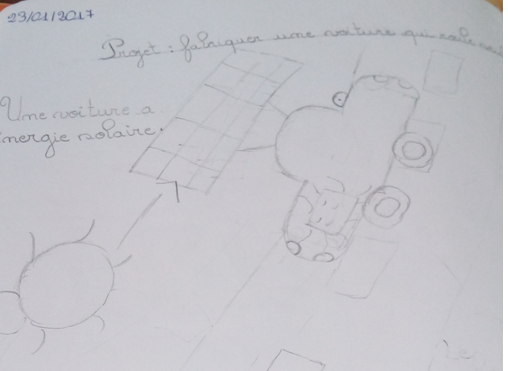 23/01/2017
Projet : fabriquer une voiture qui roule
Une voiture a
énergie solaire.